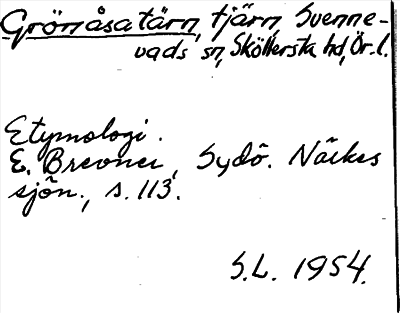 Grönåsatärn, tjärn, Svenne-
vads sn, Sköllersta hd, Ör. l.
Etymologi.
E. Brevner, Sydö. Närkes
sjön., s. 113.
S.L. 1954.